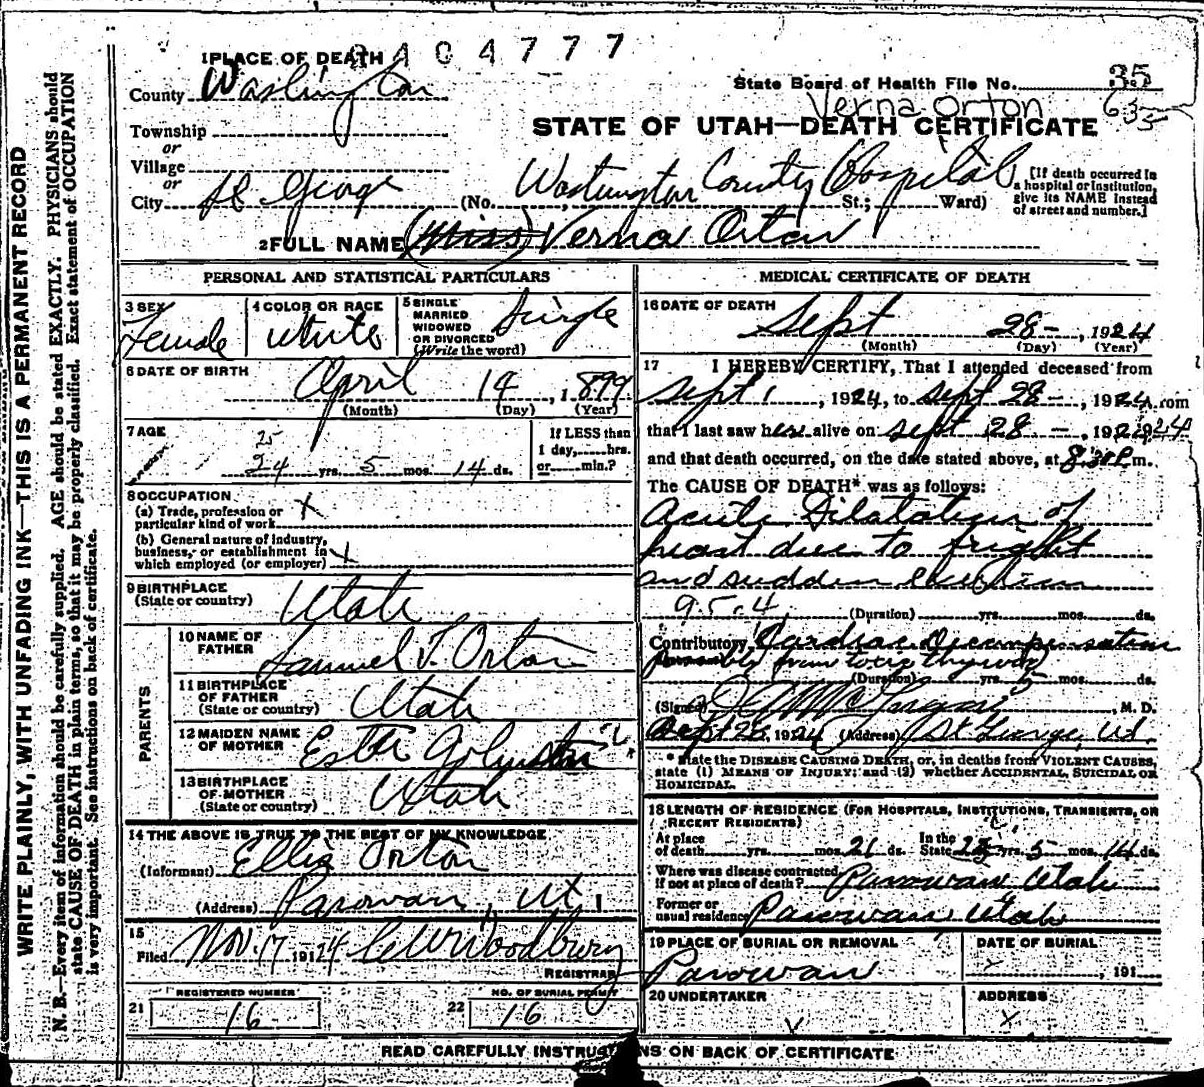 WRITE PLAINLY, WITH UNFADING INK—THIS IS A PERMANENT RECORD
N. B.—Every item of information should be carefully supplied. AGE should be stated EXACTLY. PHYSICIANS should
state CAUSE OF DEATH in plain terms, so that it may be properly classified. Exact statement of OCCUPATION
is very important. See instructions on back of certificate.
1 PLACE OF DEATH
404777
County Washington
State Board of Health File No. 35
Verna Orton 635
Township
or
Village
or
City St George
STATE OF UTAH—DEATH CERTIFICATE
(No. Washington County Hospital St.; Ward)
[If death occurred in
a hospital or institution,
give its NAME instead
of street and number.]
2 FULL NAME (Miss) Verna Orton
PERSONAL AND STATISTICAL PARTICULARS
3 SEX Female
4 COLOR OR RACE White
5 SINGLE
MARRIED
WIDOWED
OR DIVORCED
(Write the word) Single
6 DATE OF BIRTH
April 14, 1899
(Month) (Day) (Year)
7 AGE
25
24 yrs. 5 mos. 14 ds.
If LESS than
1 day, hrs.
or min.?
8 OCCUPATION
(a) Trade, profession or
particular kind of work X
(b) General nature of industry,
business, or establishment in
which employed (or employer) X
9 BIRTHPLACE
(State or country) Utah
PARENTS
10 NAME OF
FATHER Samuel T. Orton
11 BIRTHPLACE
OF FATHER
(State or country) Utah
12 MAIDEN NAME
OF MOTHER
13 BIRTHPLACE
OF MOTHER
(State or country) Utah
14 THE ABOVE IS TRUE TO THE BEST OF MY KNOWLEDGE
(Informant) Ellis Orton
(Address) Parowan, Ut.
15
Filed Nov. 17 1924 Woodbury
REGISTRAR
REGISTERED NUMBER
21 16
NO. OF BURIAL PERMIT
22 16
MEDICAL CERTIFICATE OF DEATH
16 DATE OF DEATH
Sept 28 - , 1924
(Month) (Day) (Year)
17 I HEREBY CERTIFY, That I attended deceased from
Sept 1, 1924, to Sept 28 - , 1924
that I last saw her alive on Sept 28 - , 1924
and that death occurred, on the date stated above, at 8:30 P.m.
The CAUSE OF DEATH* was as follows:
Acute Dilatation of
heart due to fright
and sudden exertion
95.4
(Duration) yrs. mos. ds.
Contributory Cardiac Decompensation
possibly from toxic thyroid
(Duration) yrs. 5 mos. ds.
(Signed) M. D.
1924 (Address) St George, Ut.
* State the DISEASE CAUSING DEATH, or, in deaths from VIOLENT CAUSES,
state (1) MEANS OF INJURY; and (2) whether ACCIDENTAL, SUICIDAL OR
HOMICIDAL.
18 LENGTH OF RESIDENCE (FOR HOSPITALS, INSTITUTIONS, TRANSIENTS, OR
RECENT RESIDENTS)
At place
of death yrs. mos. 21 ds.
In the
State 25 yrs. 5 mos. 14 ds.
Where was disease contracted,
if not at place of death? Parowan Utah
Former or
usual residence Parowan Utah
19 PLACE OF BURIAL OR REMOVAL
Parowan
DATE OF BURIAL
, 191
20 UNDERTAKER
ADDRESS
X
READ CAREFULLY INSTRUCTIONS ON BACK OF CERTIFICATE